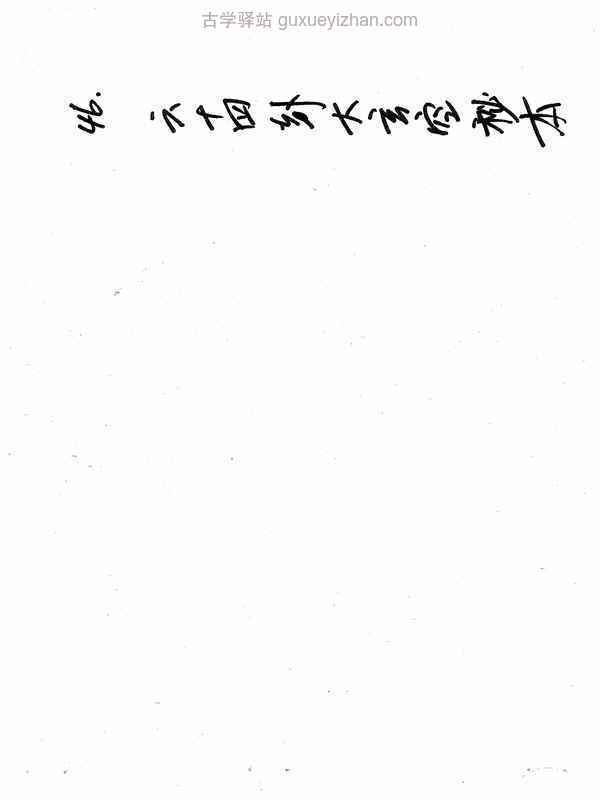 古学驿站 guxueyizhan.com
46. 六十四卦大玄空秘本